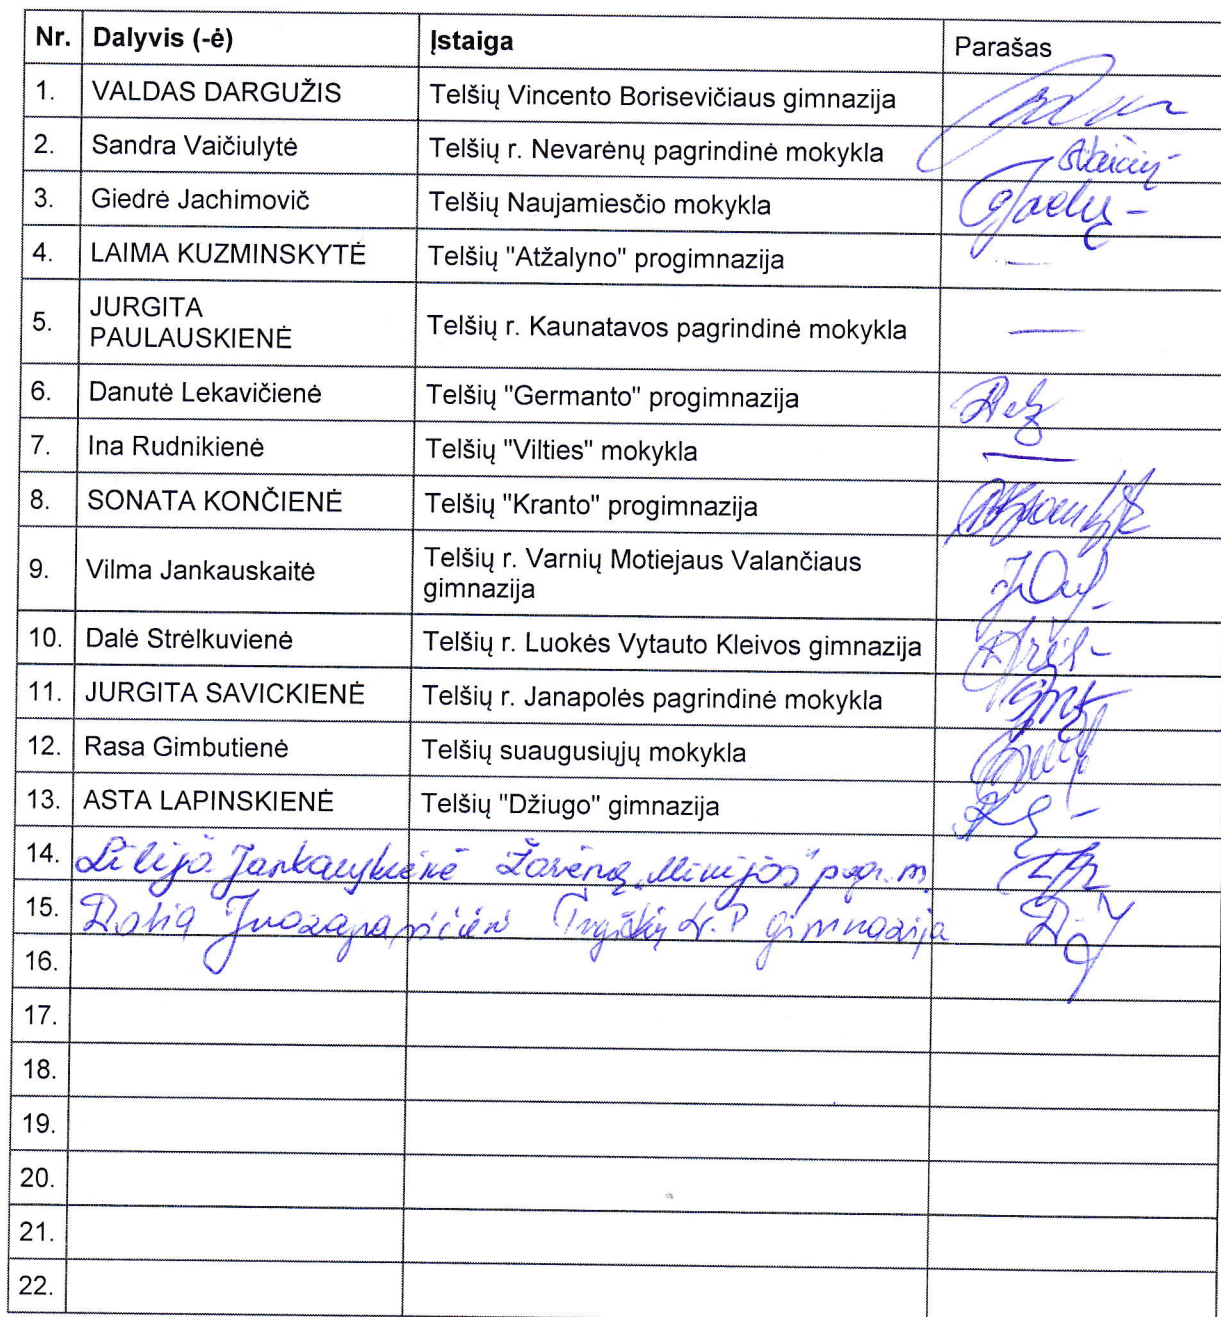 Nr. Dalyvis (-ė) Įstaiga Parašas
1. VALDAS DARGUŽIS Telšių Vincento Borisevičiaus gimnazija
2. Sandra Vaičiulytė Telšių r. Nevarėnų pagrindinė mokykla
3. Giedrė Jachimovič Telšių Naujamiesčio mokykla
4. LAIMA KUZMINSKYTĖ Telšių "Atžalyno" progimnazija —
5. JURGITA
PAULAUSKIENĖ Telšių r. Kaunatavos pagrindinė mokykla —
6. Danutė Lekavičienė Telšių "Germanto" progimnazija
7. Ina Rudnikienė Telšių "Vilties" mokykla —
8. SONATA KONČIENĖ Telšių "Kranto" progimnazija
9. Vilma Jankauskaitė Telšių r. Varnių Motiejaus Valančiaus
gimnazija
10. Dalė Strėlkuvienė Telšių r. Luokės Vytauto Kleivos gimnazija
11. JURGITA SAVICKIENĖ Telšių r. Janapolės pagrindinė mokykla
12. Rasa Gimbutienė Telšių suaugusiųjų mokykla
13. ASTA LAPINSKIENĖ Telšių "Džiugo" gimnazija
14. Lilija Jankauskienė Žarėnų „Minijos" pagr. m.
15. Dalia Juozapavičienė Tryškių L.P gimnazija
16.
17.
18.
19.
20.
21.
22.